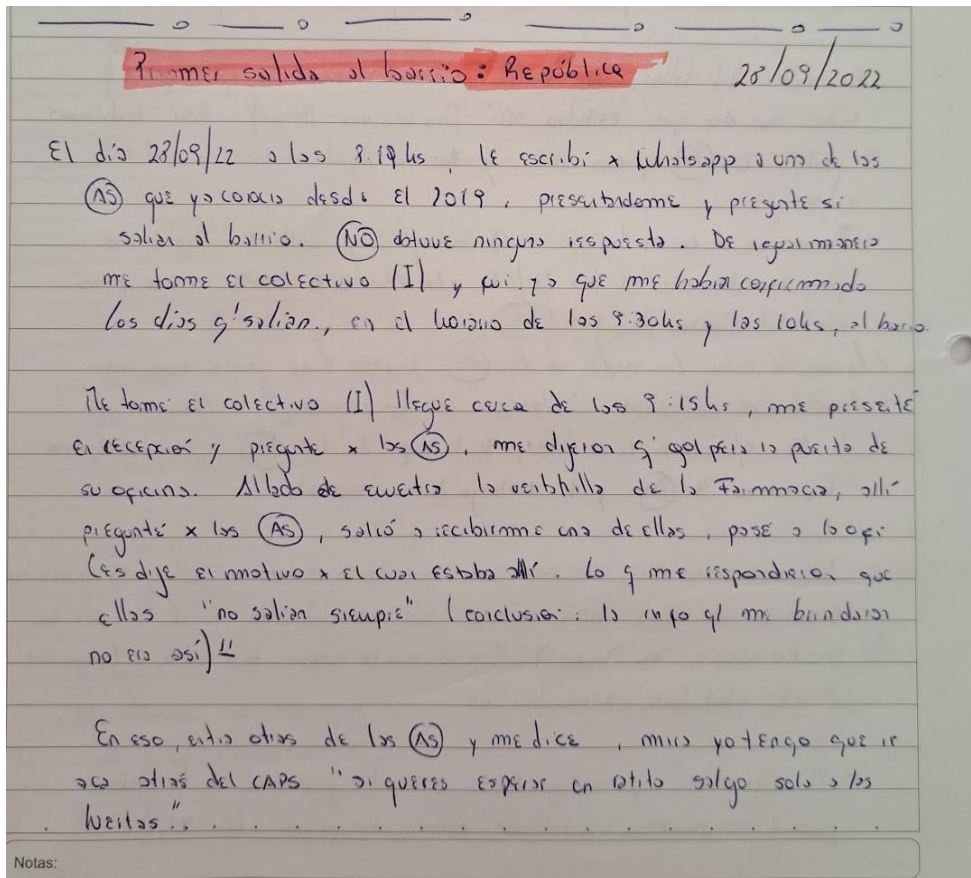 Primer salida al barrio: República 28/09/2022
El día 28/09/22 a las 8.19hs, le escribí x Whatsapp a una de las
(AS) que ya conocia desde el 2019, presentandome y pregunte si
salian al barrio. (NO) obtuve ninguna respuesta. De igual manera
me tome el colectivo (I) y fui ya que me habian confirmado
los días q' salian, en el horario de las 9:30hs y las 10hs, al barrio.
Me tome el colectivo (I) llegue cerca de las 9:15hs, me presenté
en recepción y pregunte x las (AS), me dijeron q' golpera la puerta de
su oficina. Al lado se encuentra la ventanilla de la Farmacia, allí
pregunté x las (AS), salió a recibirme una de ellas, pasé a la ofi
les dije el motivo x el cual estaba allí. Lo q me respondieron que
ellas "no salian siempre" (conclusión: la info q' me brindaron
no era así)!!
En eso, entra otras de las (AS) y me dice, mira yo tengo que ir
aca atras del CAPS "si queres esperar un ratito salgo solo a las
huertas"...
Notas: